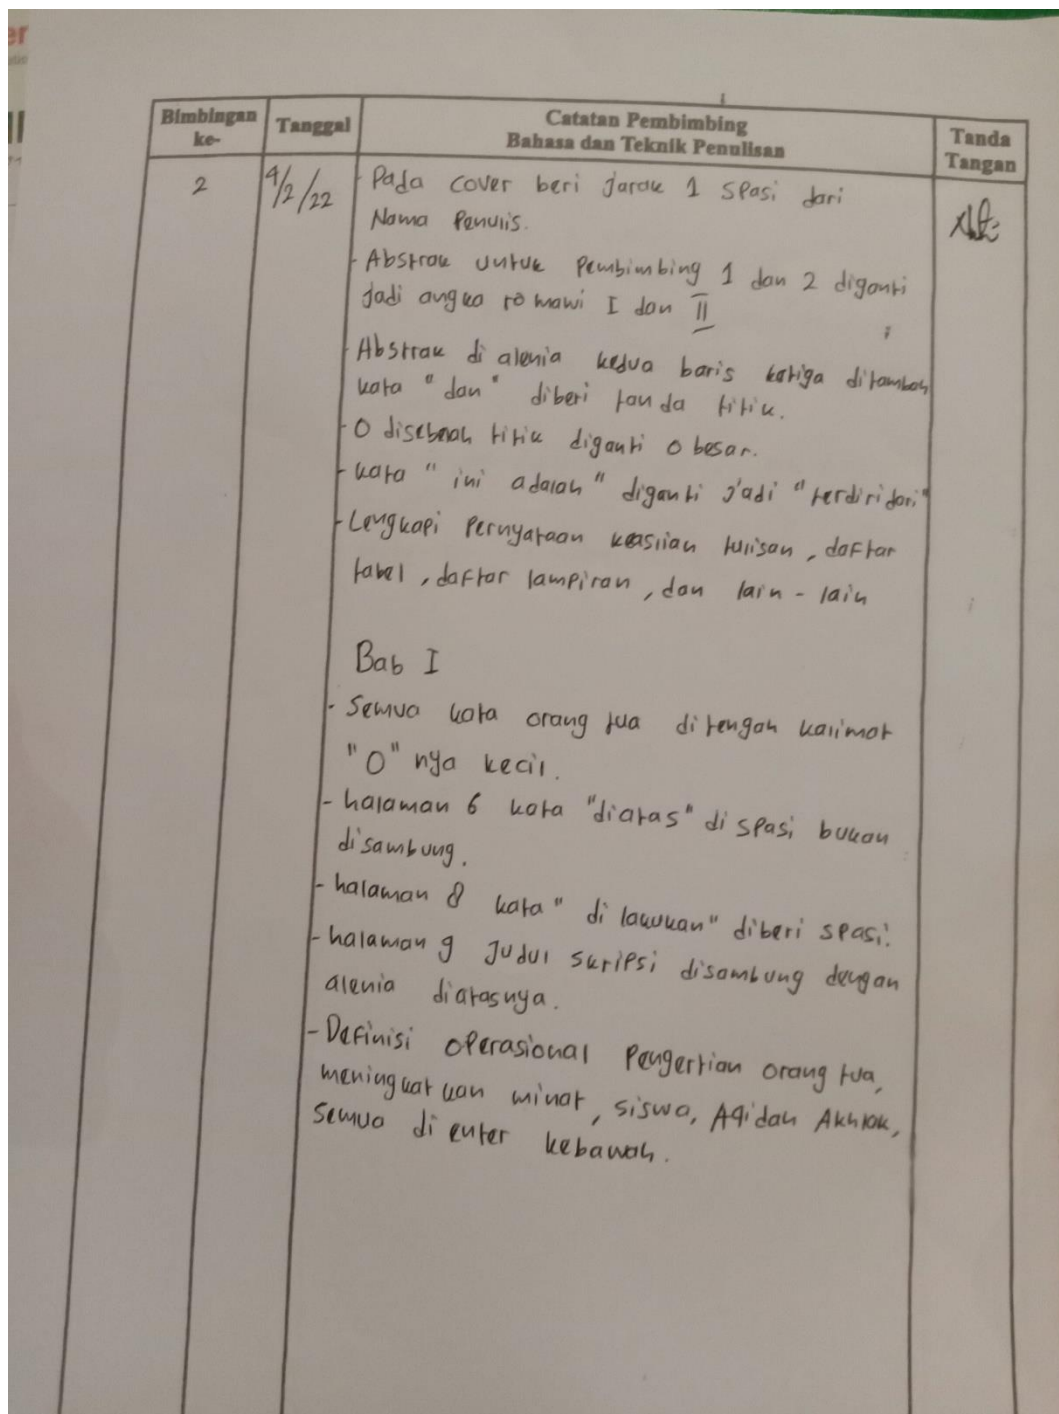 Bimbingan ke-
Tanggal
Catatan Pembimbing
Bahasa dan Teknik Penulisan
Tanda
Tangan
2
4/2/22
- Pada cover beri Jarak 1 spasi dari
Nama Penulis.
- Abstrak untuk Pembimbing 1 dan 2 diganti
Jadi angka romawi I dan II
- Abstrak di alenia kedua baris ketiga ditambah
kata "dan" diberi tanda titik.
- O disebelah titik diganti O besar.
- kata "ini adalah" diganti jadi "terdiri dari"
- Lengkapi Pernyataan keaslian tulisan, daftar
tabel, daftar lampiran, dan lain-lain
Bab I
- Semua kata orang tua di tengah kalimat
"O" nya kecil.
- halaman 6 kata "diatas" di spasi bukan
disambung.
- halaman 8 kata "di lakukan" diberi spasi.
- halaman 9 Judul skripsi disambung dengan
alenia diatasnya.
- Definisi operasional Pengertian orang tua,
meningkatkan minat, siswa, Aqidah Akhlak,
semua di enter kebawah.